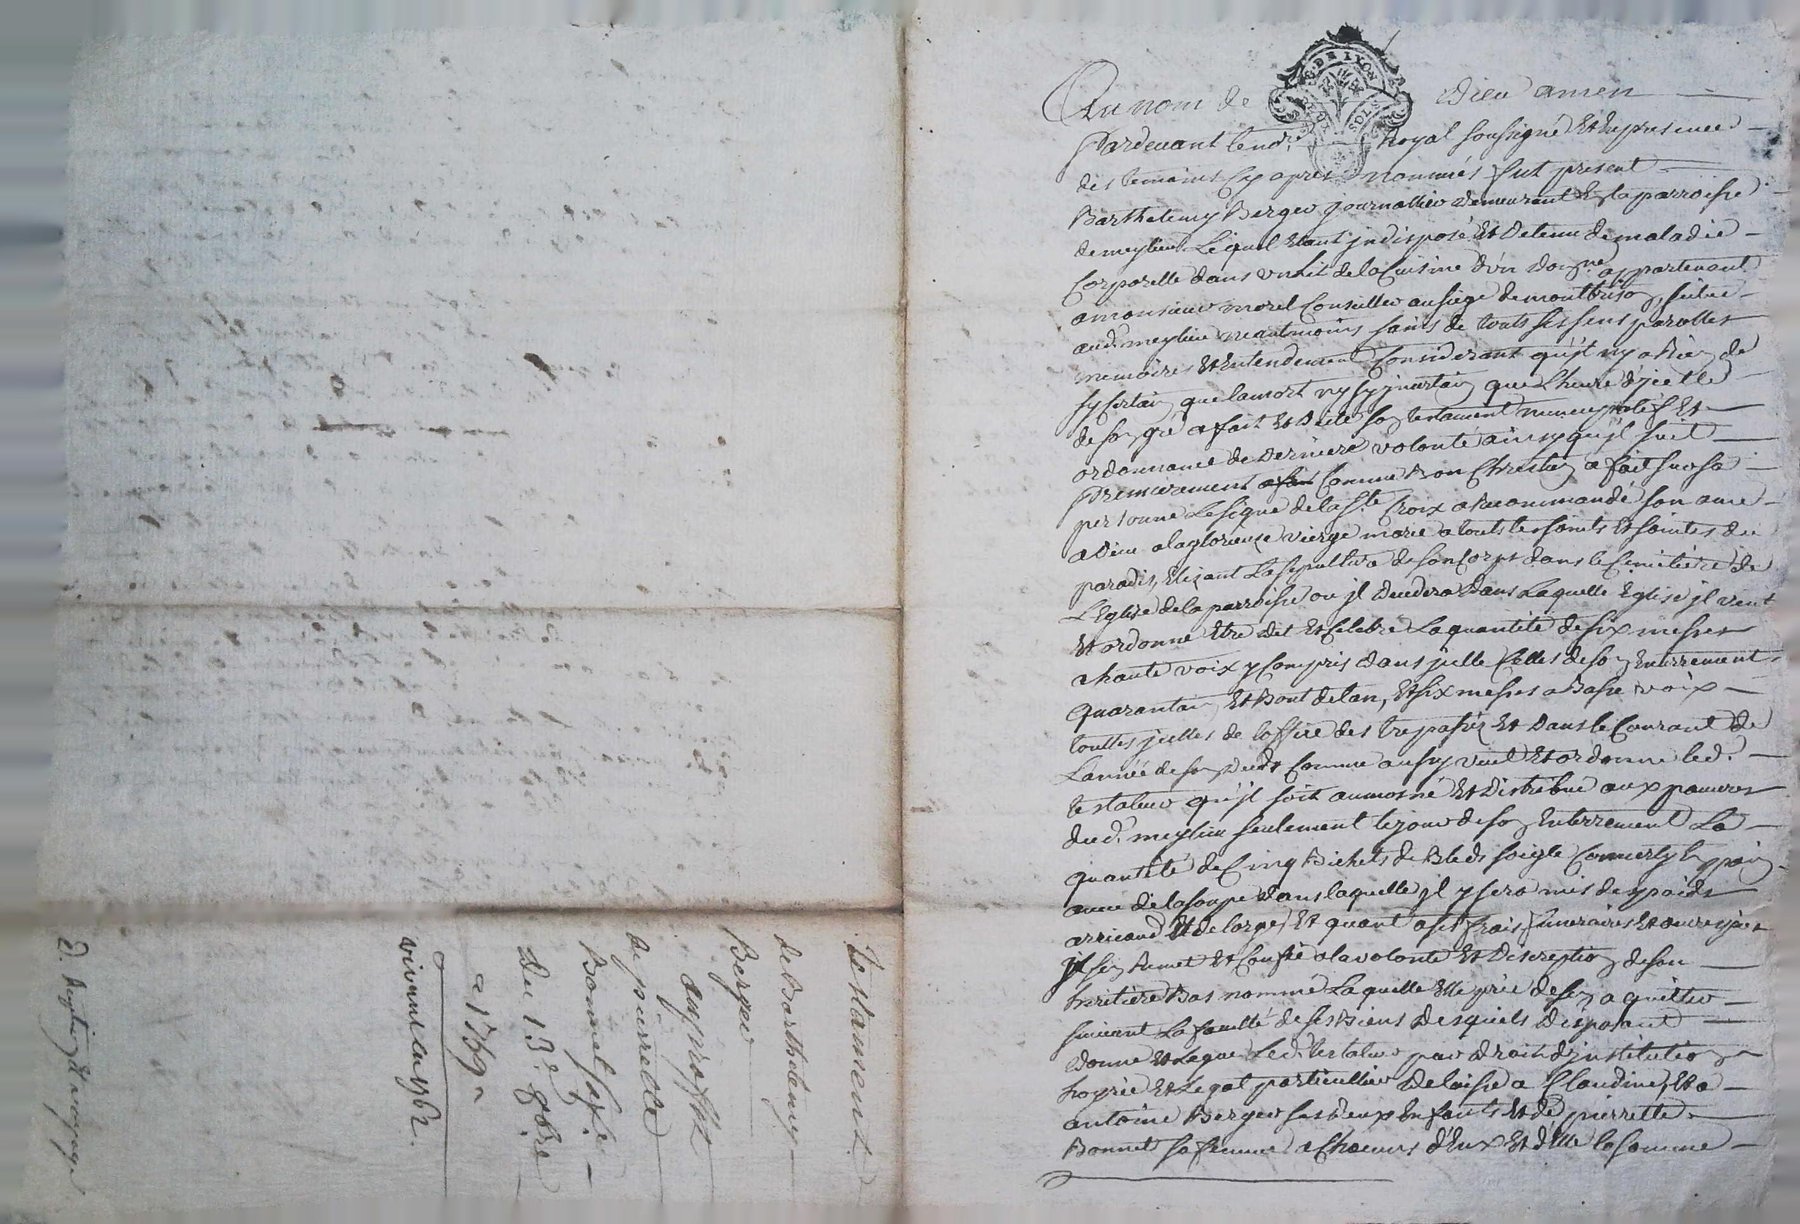 Au nom de Dieu amen
G. DE LYON
Pardevant le no.re Royal soussigné Et En presence
des temoins Cy apres nommés fut present
Barthelemy Berger journallier demeurant En la parroisse
de meylieu Lequel Etant jndisposé Et Detenu de maladie
Corporelle dans un Lit de la Cuisine d'un dom.ne appartenant
a monsieur morel Conseiller au siege de montbrison, scitué
aud. meylieu neantmoins sains de touts ses sens parolles
memoires Et Entendement Considerant qu'jl ny a Rien de
sy certain que la mort ny sy jncertain que L'heure d'jcelle
de son gré a fait Et Dicté son testament nuncupatif Et
ordonnance de Derniere volonté ainsy qu'jl suit
Premierement Comme Bon Chrestien a fait sur sa
personne Le signe de la S.te Croix a Recommandé son ame
a Dieu a la glorieuse vierge marie a touts les saints Et saintes du
paradis, Elizant La sepulture de son Corps dans le Cimetière de
L'Eglise de la parroisse ou jl decedera Dans Laquelle Eglise jl veut
Et ordonne Etre dit Et Celebré La quantité de six messes
a haute voix y Compris dans jcelle Celles de son Enterrement
quarantain Et Bout de lan, Et six messes a Basse voix
touttes jcelles de loffice des trepassés Et Dans le Courant de
Lannée de son deceds Comme aussy veut Et ordonne led.
testateur qu'jl soit aumosné Et Distribué aux pauvres
dud. meylieu seulement le jour de son Enterrement La
quantité de Cinq Bichets de Bled soigle Converty En pain
avec de la soupe dans laquelle jl y sera mis des poids
Et de lorge, Et quant a ses frais funeraires Et œuvres pies
jl s'en Remet Et Confie a la volonté Et Discretion de son
heritière Bas nommé Laquelle Elle prie de s'en aquitter
suivant La faculté de ses Biens Desquels Disposant
Donne Et Legue Led. testateur par droit d'jnstitution
hoyrie Et Legat particullier Delaisse a Claudine, Et a
antoine Berger ses deux Enfants Et de pierrette
Bonnet sa femme a Chacuns d'Eux Et d'Elle la somme
testament
de Barthelemy
Berger
au proffit
de pierrette
Bonnet sa fe.
du 13.e 8bre
1769